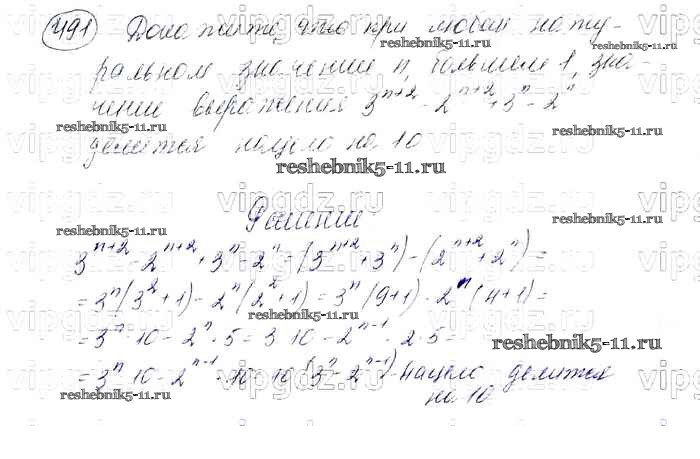 491 Докажите, что при любом нату-
ральном значении n, большем 1, зна-
чение выражения 3^{n+2} - 2^{n+2} + 3^n - 2^n
reshebnik5-11.ru reshebnik5-11.ru
делится нацело на 10
reshebnik5-11.ru
Решение
reshebnik5-11.ru reshebnik5-11.ru
3^{n+2} - 2^{n+2} + 3^n - 2^n = (3^{n+2} + 3^n) - (2^{n+2} + 2^n) =
= 3^n (3^2 + 1) - 2^n (2^2 + 1) = 3^n (9+1) - 2^n (4+1) =
reshebnik5-11.ru
= 3^n · 10 - 2^n · 5 = 3 · 10 - 2^{n-1} · 2 · 5 =
reshebnik5-11.ru
= 3^n · 10 - 2^{n-1} · 10 = 10 (3^n - 2^{n-1}) - нацело делится
reshebnik5-11.ru
на 10